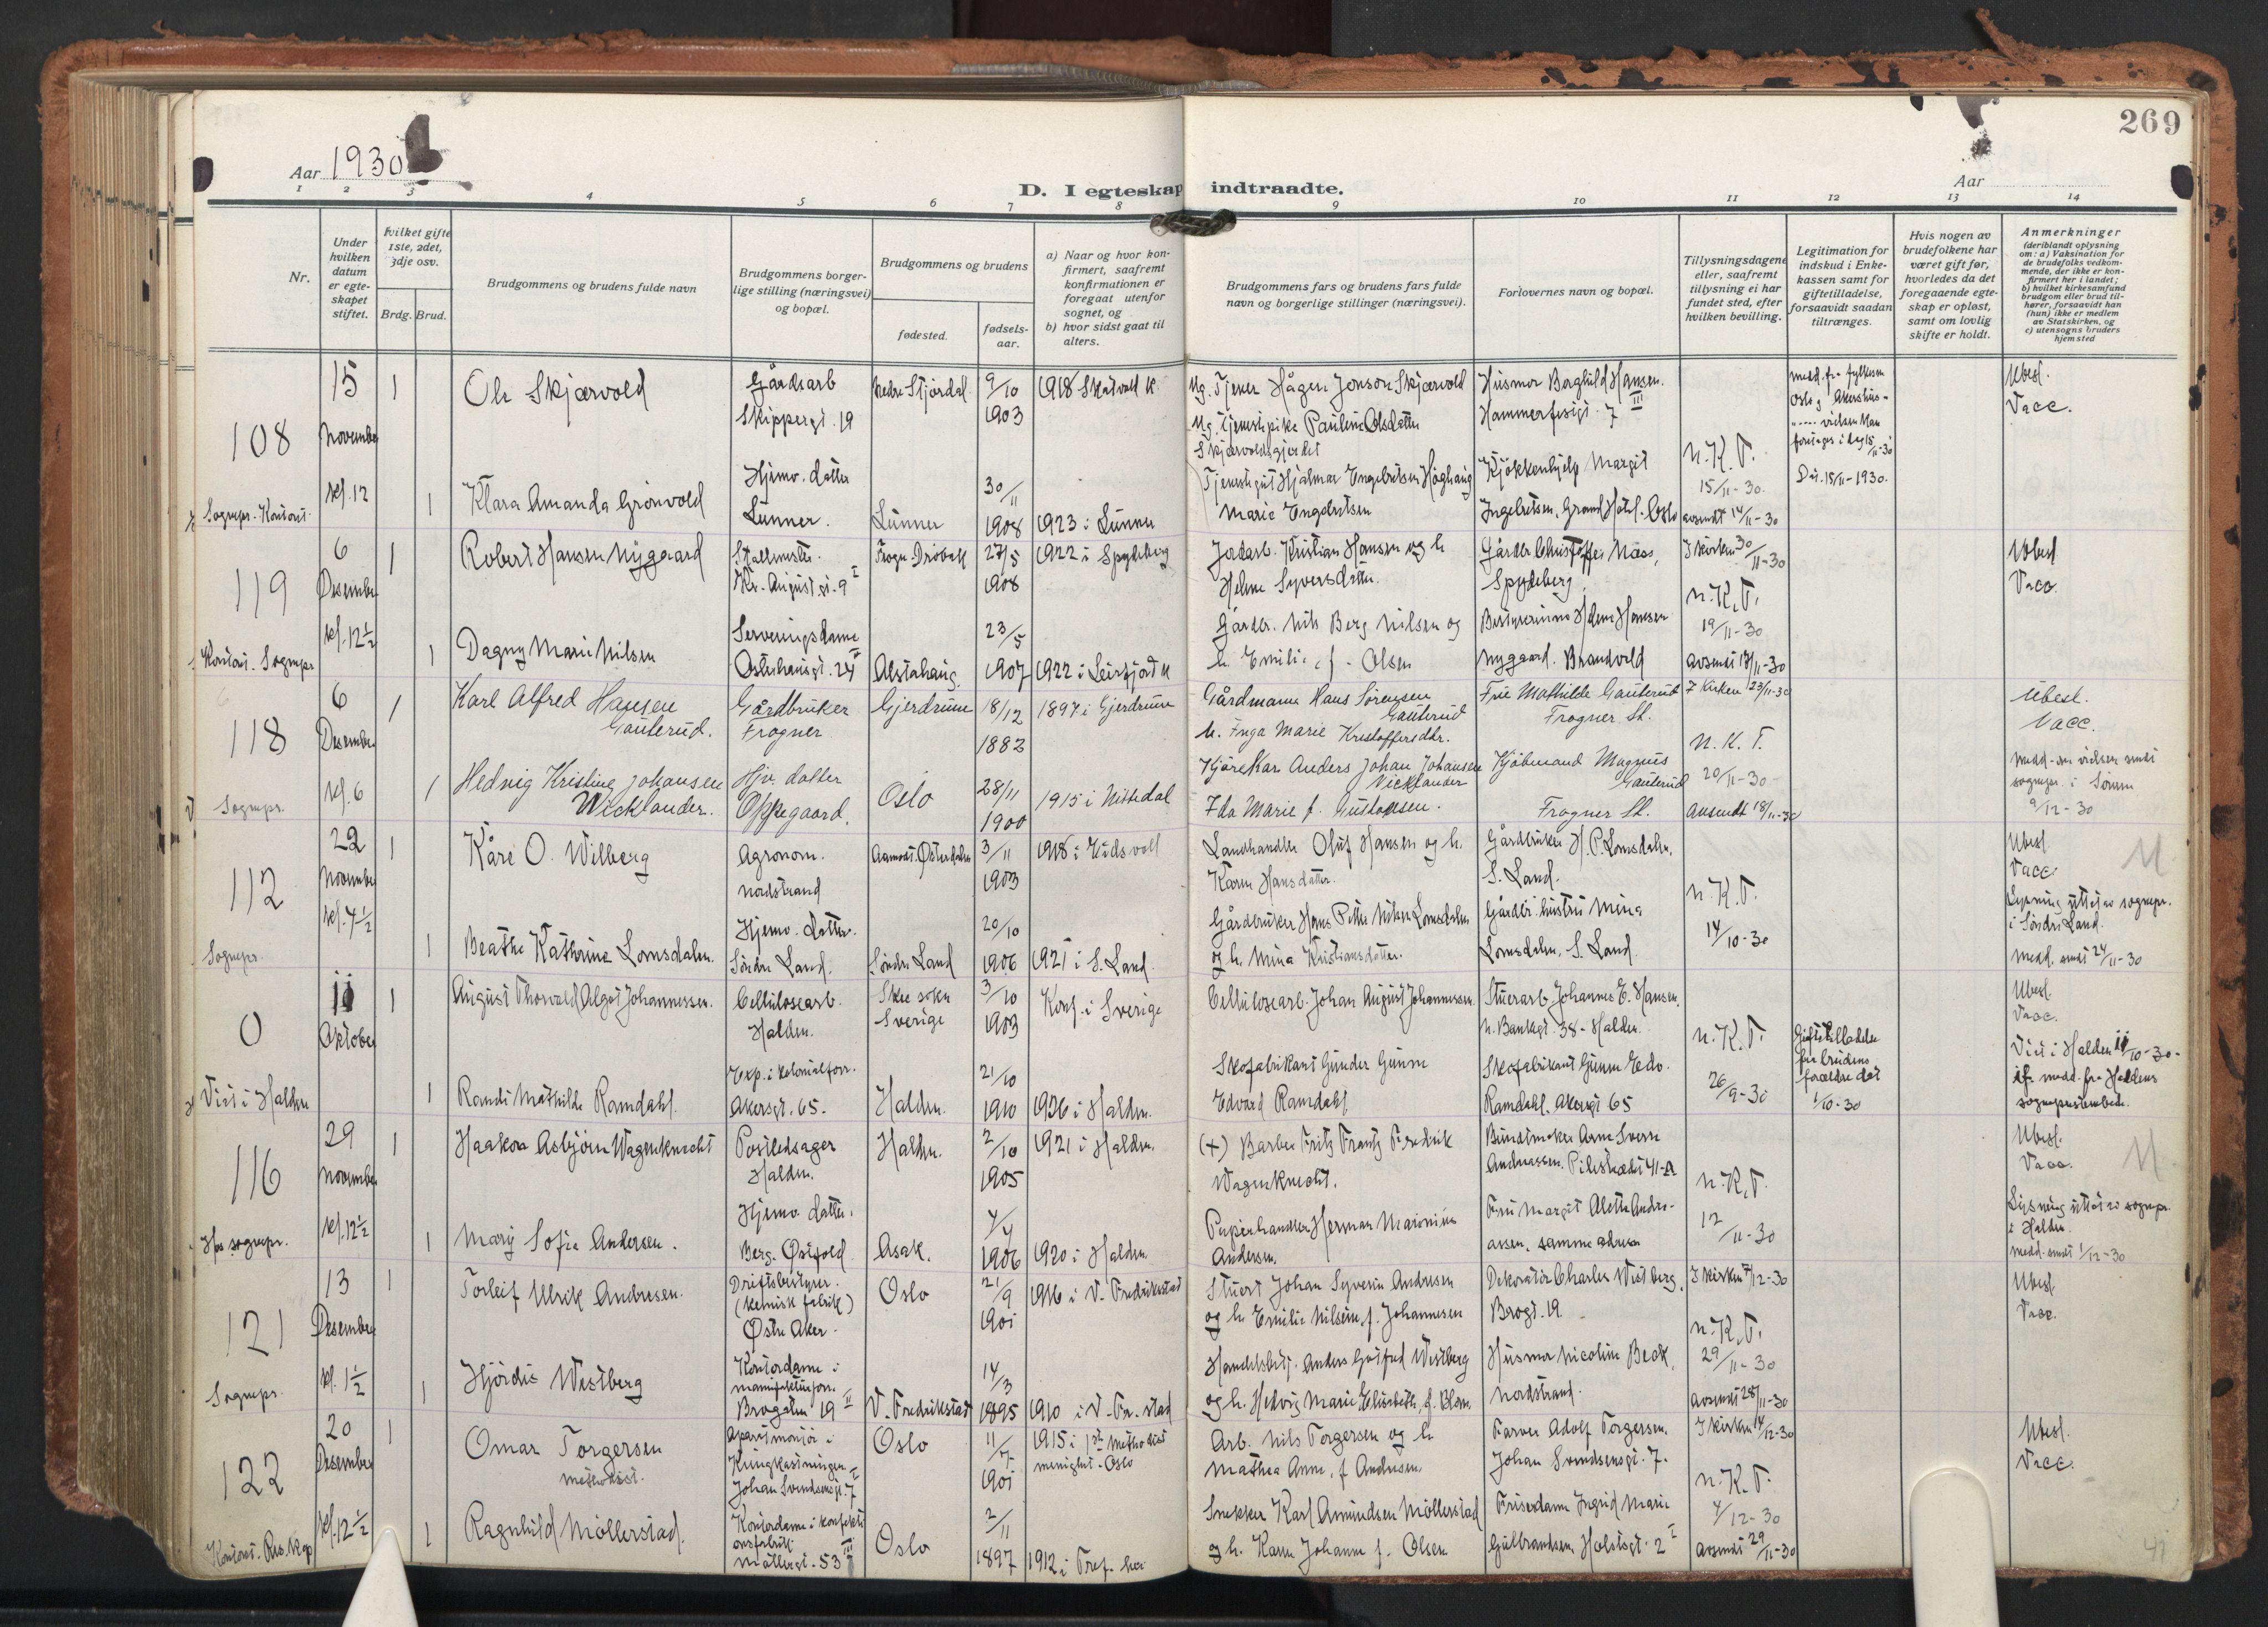 269
Aar 1930
Aar
D. I egteskap indtraadte.
1 2 3 4 5 6 7 8 9 10 11 12 13 14
Nr.
Under hvilken datum er egteskapet stiftet.
hvilket gifte 1ste, 2det, 3dje osv.
Brdg. Brud.
Brudgommens og brudens fulde navn
Brudgommens borgerlige stilling (næringsvei) og bopæl.
Brudgommens og brudens
fødested.
fødselsaar.
a) Naar og hvor konfirmert, saafremt konfirmationen er foregaat utenfor sognet, og
b) hvor sidst gaat til alters.
Brudgommens fars og brudens fars fulde navn og borgerlige stillinger (næringsvei).
Forlovernes navn og bopæl.
Tillysningsdagene eller, saafremt tillysning ei har fundet sted, efter hvilken bevilling.
Legitimation for indskud i Enkekassen samt for giftetilladelse, forsaavidt saadan tiltrænges.
Hvis nogen av brudefolkene har været gift før, hvorledes da det foregaaende egteskap er opløst, samt om lovlig skifte er holdt.
Anmerkninger (deriblandt oplysning om: a) Vaksination for de brudefolks vedkommende, der ikke er konfirmert her i landet; b) hvilket kirkesamfund brudgom eller brud tilhører, forsaavidt han (hun) ikke er medlem av Statskirken, og c) utensogns bruders hjemsted
108
15 November kl. 12
Sognepr. Kontor
1
Ole Skjærvold
Gårdsarb Skippergt. 19
Nedre Stjørdal
9/10 1903
1918 Skatvold k.
Ug. Tjener Hågen Jonson Skjærvold
Ug. Tjenestpike Pauline Olsdatter
Husmor Borghild Hansen.
Hammerfestgt. 7 III
n. K. T.
15/11-30.
avsendt 14/11-30
Dat. 15/11-1930.
Ubesl.
Vacc.
1
Klara Amanda Grönvold
Hjemv. datter Lunner.
Lunner
30/11 1908
1923 i Lunner
Tjenestgut Hjalmar Engebretsen Høghaug
Marie Engebretsen
Kjøkkenhjelp Margit
Ingebretsen, Grand Hotel. Oslo
119
6 Desember kl. 12½
Kontor. Sognepr
1
Robert Hansen Nygaard
Stallmester. Kr. Augusts gt. 9 I
Frogn. Drøbak
27/5 1908
1922 i Spydeberg
Jordarb. Kristian Hansen og h.
Helene Syversdatter.
Gårdbr. Christoffer Næss,
Spydeberg
I kirken 30/11-30
n. K. T.
19/11-30
avsendt 17/11-30
Ubesl
Vacc.
1
Dagny Marie Nilsen
Serveringsdame Osterhausgt. 24 II
Alstahaug.
23/5 1907
1922 i Leirfjord k
Gårdbr. Nils Berg Nilsen og
h. Emilie f. Olsen
Bestyrerinne Helene Hansen
Nygaard. Brandvold
118
6 Desember kl. 6
Sognepr.
1
Karl Alfred Hansen
Gauterud.
Gårdbruker Frogner
Gjerdrum
18/12 1882
1897 i Gjerdrum
Gårdmann Hans Sørensen
Gauterud
h. Inga Marie Kristoffersdtr.
Frue Mathilde Gauterud
Frogner St.
I Kirken 23/11-30
n. K. T.
20/11-30
avsendt 18/11-30
Ubesl.
Vacc.
medd. om vielsen sendt
sognepr. i Sørum
9/12-30
1
Hedvig Kristine Johansen
Wicklander.
Hjv. datter Oppegaard.
Oslo
28/11 1900
1915 i Nittedal
Kjørekar Anders Johan Johansen
Wicklander
Ida Marie f. Gustavsen.
Kjøbmand Magnus
Gauterud
Frogner St.
112
22 November kl. 4½
Sognepr.
1
Kåre O. Wilberg
Agronom. Nordstrand
Aamodt. Østerdalen
3/11 1903
1918 i Eidsvoll
Landhandler Oluf Hansen og h.
Karen Hansdatter.
Gårdbruker H. P. Lomsdalen,
S. Land.
n. K. T.
14/10-30
Ubesl
Vacc.
Lysning uttatt av sognepr.
i Söndre Land.
medd. sendt 24/11-30
1
Beathe Kathrine Lomsdalen.
Hjemv. datter. Söndre Land.
Söndre Land
20/10 1906
1921 i S. Land.
Gårdbruker Hans Petter Nilsen Lomsdalen
og h. Mina Kristiansdatter.
Gårdbr. hustru Mina
Lomsdalen, S. Land.
0
11 Oktober
Viet i Halden
1
August Thorvald Algot Johannessen.
Cellulosearb. Halden.
Skee sokn Sverige
3/10 1903
Konf. i Sverige
Cellulosearb. Johan August Johannessen.
Stuerarb. Johannes E. Hansen,
n. Bankgt. 38 - Halden.
n. K. T.
26/9-30
Giftetilladelse
fra brudens
foreldre dat
1/10-30
Ubesl.
Vacc.
Viet i Halden 11/10-30-
if. medd. fra Haldens
sogneprestembede.
1
Randi Mathilde Ramdahl.
Exp. i kolonialforr. Akersgt. 65.
Halden.
21/10 1910
1926 i Halden.
Skofabrikant Gunder Gunne
Edvard Ramdahl
Skofabrikant Gunne Edv.
Ramdahl. Akersgt 65
116
29 November kl. 12½
Hos sognepr.
1
Haakon Asbjörn Wagenknecht
Postledsager Halden.
Halden.
2/10 1905
1921 i Halden.
(+) Barber Fritz Frantz Fredrik
Wagenknecht.
Buntmaker Arne Sverre
Andreassen. Pilestredet 41-A
n. K. T.
12/11-30
Ubesl.
Vacc.
Lysning uttatt av sognepr.
i Halden.
medd. sendt 1/12-30
1
Mary Sofie Andersen.
Hjemv. datter. Berg. Østfold.
Asak.
4/4 1906
1920 i Halden.
Papirhandler Herman Marinius
Andersen.
Fru Margit Alette Andre-
assen, samme adresse
121
13 Desember kl. 1½
Sognepr.
1
Torleif Ulrik Andresen.
Driftsbestyrer. (kemisk fabrik) Østre Aker.
Oslo
21/9 1901
1916 i V. Fredrikstad
Stuert Johan Syverin Andresen
og h. Emilie Nilsine, f. Johannesen
Dekoratør Charles Westberg,
Brogt. 19
I kirken 7/12-30
n. K. T.
29/11-30
avsendt 28/11-30
Ubesl
Vacc.
1
Hjördis Westberg
Kontordame i manufakturforr. Brogaten 19 II
V. Fredrikstad
14/3 1895
1910 i V. Fr. stad
Handelsbetj. Anders Gotfred Westberg
og h. Hedvig Marie Elisabeth, f. Blom.
Husmor Nicoline Beck,
Nordstrand.
122
20 Desember kl. 12½
Kontor. Res. Kap
1
Omar Torgersen
methodist.
Aparatmontör i Kringkastningen Johan Svendsensgt. 7 I
Oslo
11/7 1901
1915 i 1st. Methodist
menighet - Oslo
Arb. Nils Torgersen og h.
Mathea Anne, f. Andresen.
Farver Adolf Torgersen.
Johan Svendsensgt. 7.
I kirken 14/12-30
n. K. T.
4/12-30
avsendt 29/11-30
Ubesl.
Vacc.
1
Ragnhild Möllerstad.
Kontordame i konfektionsfabrik Möllergt. 53 III
Oslo
2/11 1897
1912 i Tref. her
Snekker Karl Amundsen Möllerstad
og h. Karen Johanne f. Olsen
Friserdame Ingrid Marie
Gulbrandsen, Holstsgt. 2 I
41